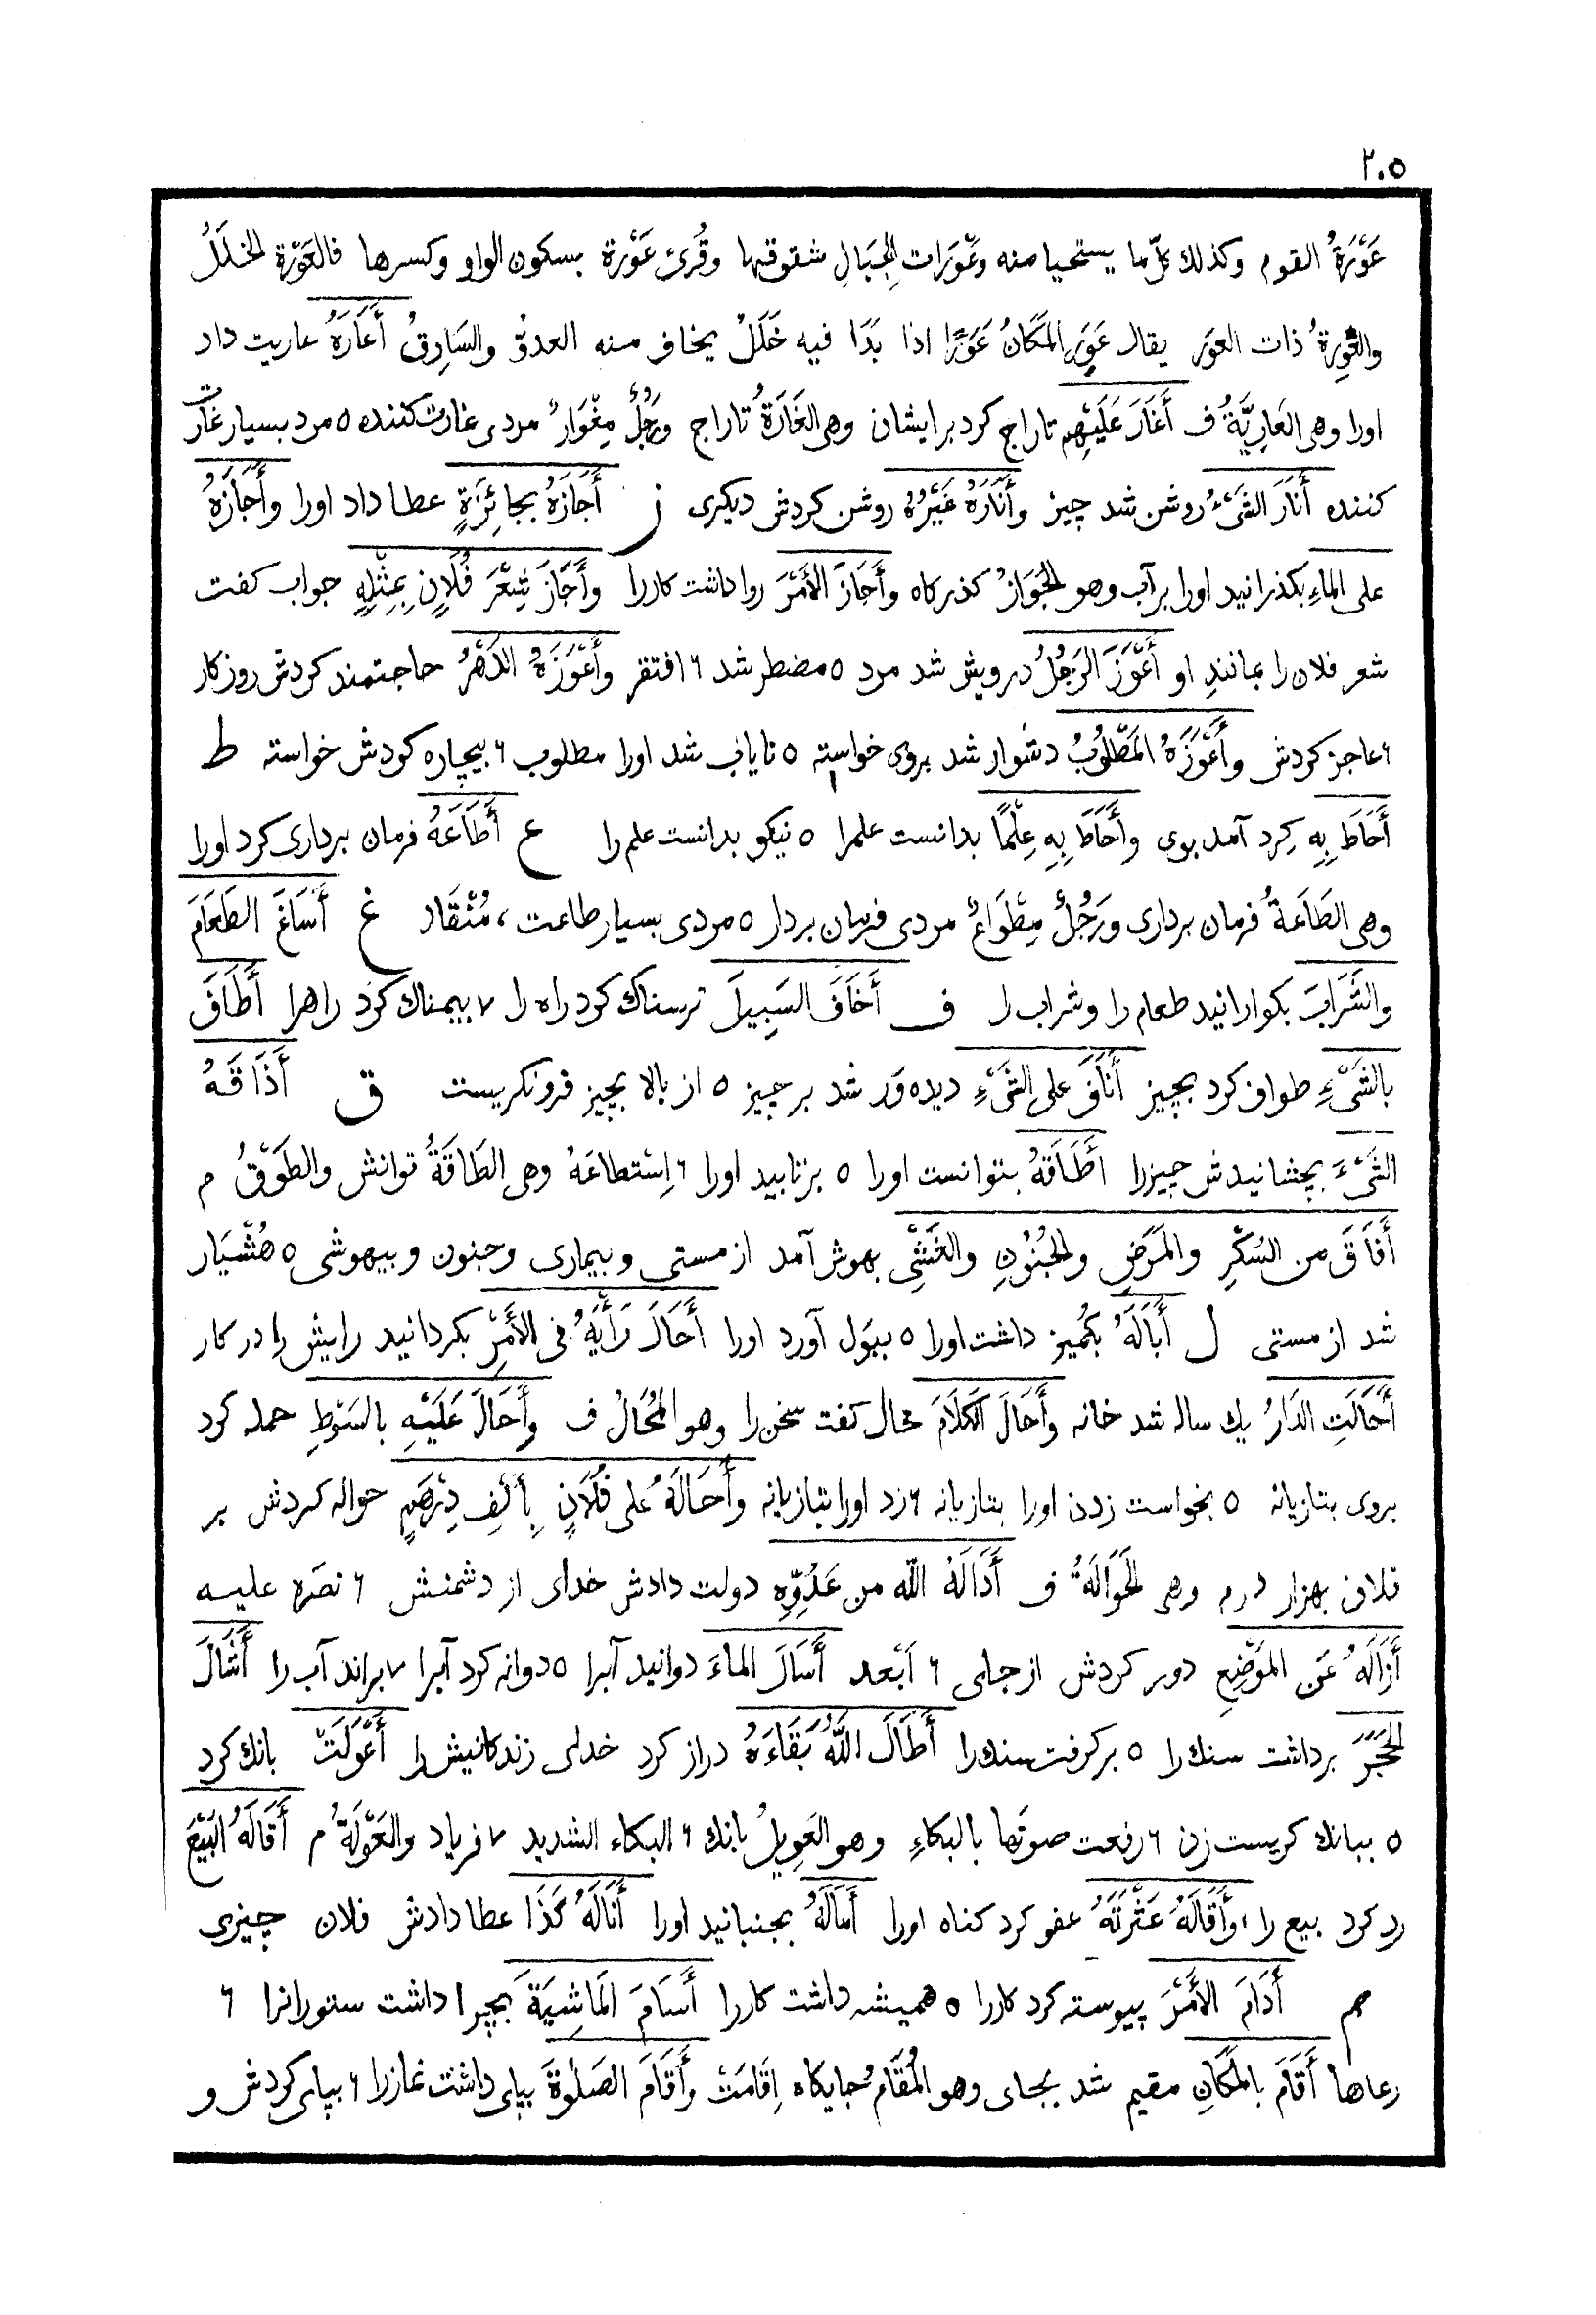 ٢٠٥
عَوْرَةُ القوم وكذلك كلّ ما يستحيا منه وعَوْرَات الجِبَالِ شقوقها وقُرِئَ عَوْرة بسكون الواو وكسرها فالعَوْرَة الخَلَلُ
والعَوِرةُ ذات العوَر يقال عَوِرَ المَكَانُ عَوَرًا اذا بَدَا فيه خَلَلٌ يخاف منه العدوّ والسَارِقُ أَعَارَهُ عاريت داد
اورا وهى العَارِيَّةُ ف أَغَارَ عَلَيْهِم تاراج كرد بر ايشان وهى الغَارَةُ تاراج ورَجُلٌ مِغْوَارٌ مردى غارت كننده ٥ مرد بسيار غارت
كننده أَنَارَ الشَىْءُ روشن شد چيز وأَنَارَهُ غَيْرُهُ روشن كردش ديكرى ز أَجَازَهُ بجَائِزَةٍ عطا داد اورا وأَجَازَهُ
على الماءِ بكذرانيد اورا بر آب وهو الجَوَازُ كذركاه وأَجَازَ الأَمْرَ روا داشت كاررا وأَجَازَ شِعْرَ فُلَانٍ بِمِثْلِهِ جواب كفت
شعر فلان را بمانندِ او أَعْوَزَ الرَجُلُ درويش شد مرد ٥ مضطر شد ٦ افتقر وأَعْوَزَهُ الدَهْرُ حاجتمند كردش روزكار
٦ عاجز كردش وأَعْوَزَهُ المَطْلُوبُ دشوار شد بروى خواسته ٥ ناياب شد اورا مطلوب ٦ بيچاره كردش خواسته ط
أَحَاطَ بِهِ كِرد آمد بوى وأَحَاطَ بِهِ عِلْمًا بدانست علمرا ٥ نيكو بدانست علم را ع أَطَاعَهُ فرمان بردارى كرد اورا
وهى الطَاعَةُ فرمان بردارى ورَجُلٌ مِطْوَاعٌ مردى فرمان بردار ٥ مردى بسيار طاعت، مُنْقَاد غ أَسَاغَ الطَعَامَ
والشَرَابَ بكوارانيد طعام را وشراب را ف أَخَافَ السَبِيلَ ترسناك كرد راه را ٧ بيمناك كرد راهرا أَطَافَ
بالشَىْءِ طواف كرد بچيز أَنَافَ على الشَىْءِ ديده وَر شد بر چيز ٥ از بالا بچيز فرونكريست ق أَذَاقَهُ
الشَىْءَ بچشانيدش چيزرا أَطَاقَهُ بتوانست اورا ٥ برتابيد اورا ٦ اِسْتطاعَهُ وهى الطَاقَةُ توانش والطَوْقُ م
أَفَاقَ من السُكْرِ والمَرَضِ والجُنُونِ والغَشْىِ بهوش آمد از مستى و بيمارى و جنون و بيهوشى ٥ هُشْيَار
شد از مستى ل أَبَالَهُ بكُميز داشت اورا ٥ ببَول آورد اورا أَحَالَ رَأْيَهُ فى الأَمْرِ بكردانيد رايش را در كار
أَحَالَتِ الدَارُ يك ساله شد خانه وأَحَالَ الكَلَامَ محال كفت سخن را وهو المُحَالُ ف وأَحَالَ عَلَيْهِ بالسَوْطِ حمله كرد
بروى بتازيانه ٥ بخواست زدن اورا بتازيانه ٦ زد اورا بتازيانه وأَحَالَهُ على فُلَانٍ بِأَلْفِ دِرْهَمٍ حواله كردش بر
فلان بهزار درم وهى الحَوَالَةُ ف أَدَالَهُ اللّه من عَدُوِّهِ دولت دادش خداى از دشمنش ٦ نصَره عليه
أَزَالَهُ عَن المَوْضِعِ دور كردش از جاى ٦ أَبْعد أَسَالَ الماءَ دوانيد آبرا ٥ دوانه كرد آبرا ٧ براند آب را أَشَالَ
الحَجَرَ برداشت سنك را ٥ بر كرفت سنك را أَطَالَ اللّهُ بَقَاءَهُ دراز كرد خداى زندكانيش را أَعْوَلَتْ بانك كرد
٥ ببانك كريست زن ٦ رفعت صوتها بالبكاءِ وهو العَوِيلُ بانك ٦ البكاء الشديد ٧ فرياد والعَوْلَةُ م أَقَالَهُ البَيْعَ
رد كرد بيع را، وأَقَالَهُ عَثْرَتَهُ عفو كرد كناه اورا أَمَالَهُ بجنبانيد اورا أَنَالَهُ كَذَا عطا دادش فلان چيزى
م أَدَامَ الأَمْرَ پيوسته كرد كاررا ٥ هميشه داشت كاررا أَسَامَ المَاشِيَةَ بچرا داشت ستورانرا ٦
رعاها أَقَامَ بالمَكَانِ مقيم شد بجاى وهو المُقَامُ جايكاه اِقَامَتْ وأَقَامَ الصَلٰوةَ بپاى داشت نمازرا ٦ بپاى كردش و